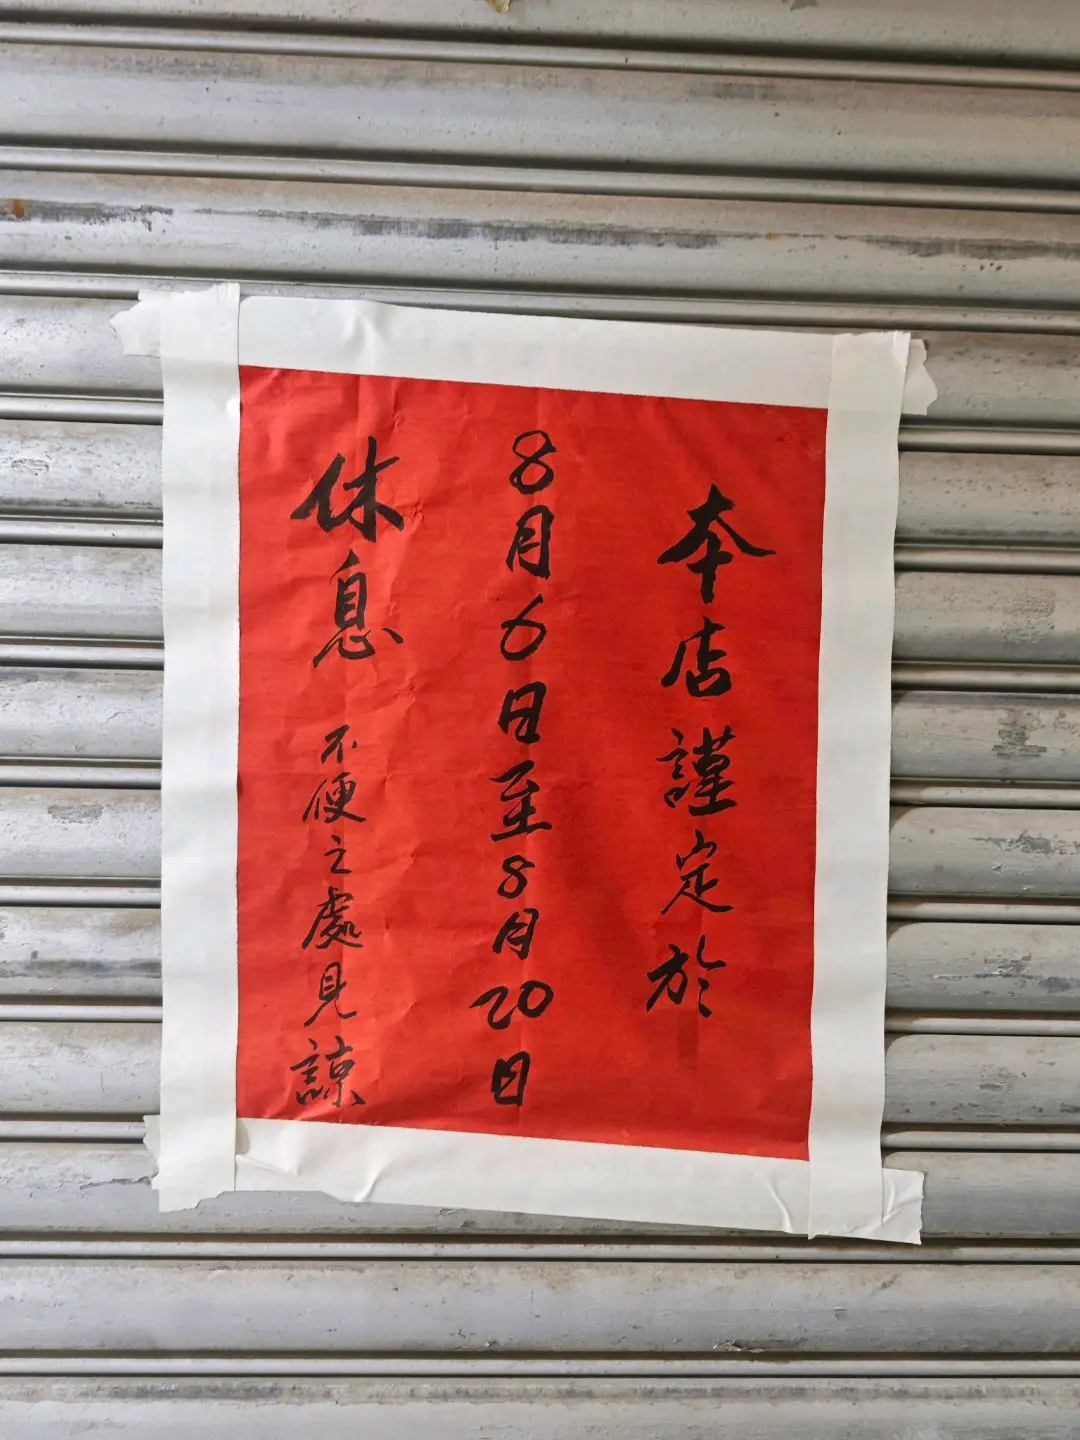 本店謹定於
8月6日至8月20日
休息 不便之處見諒